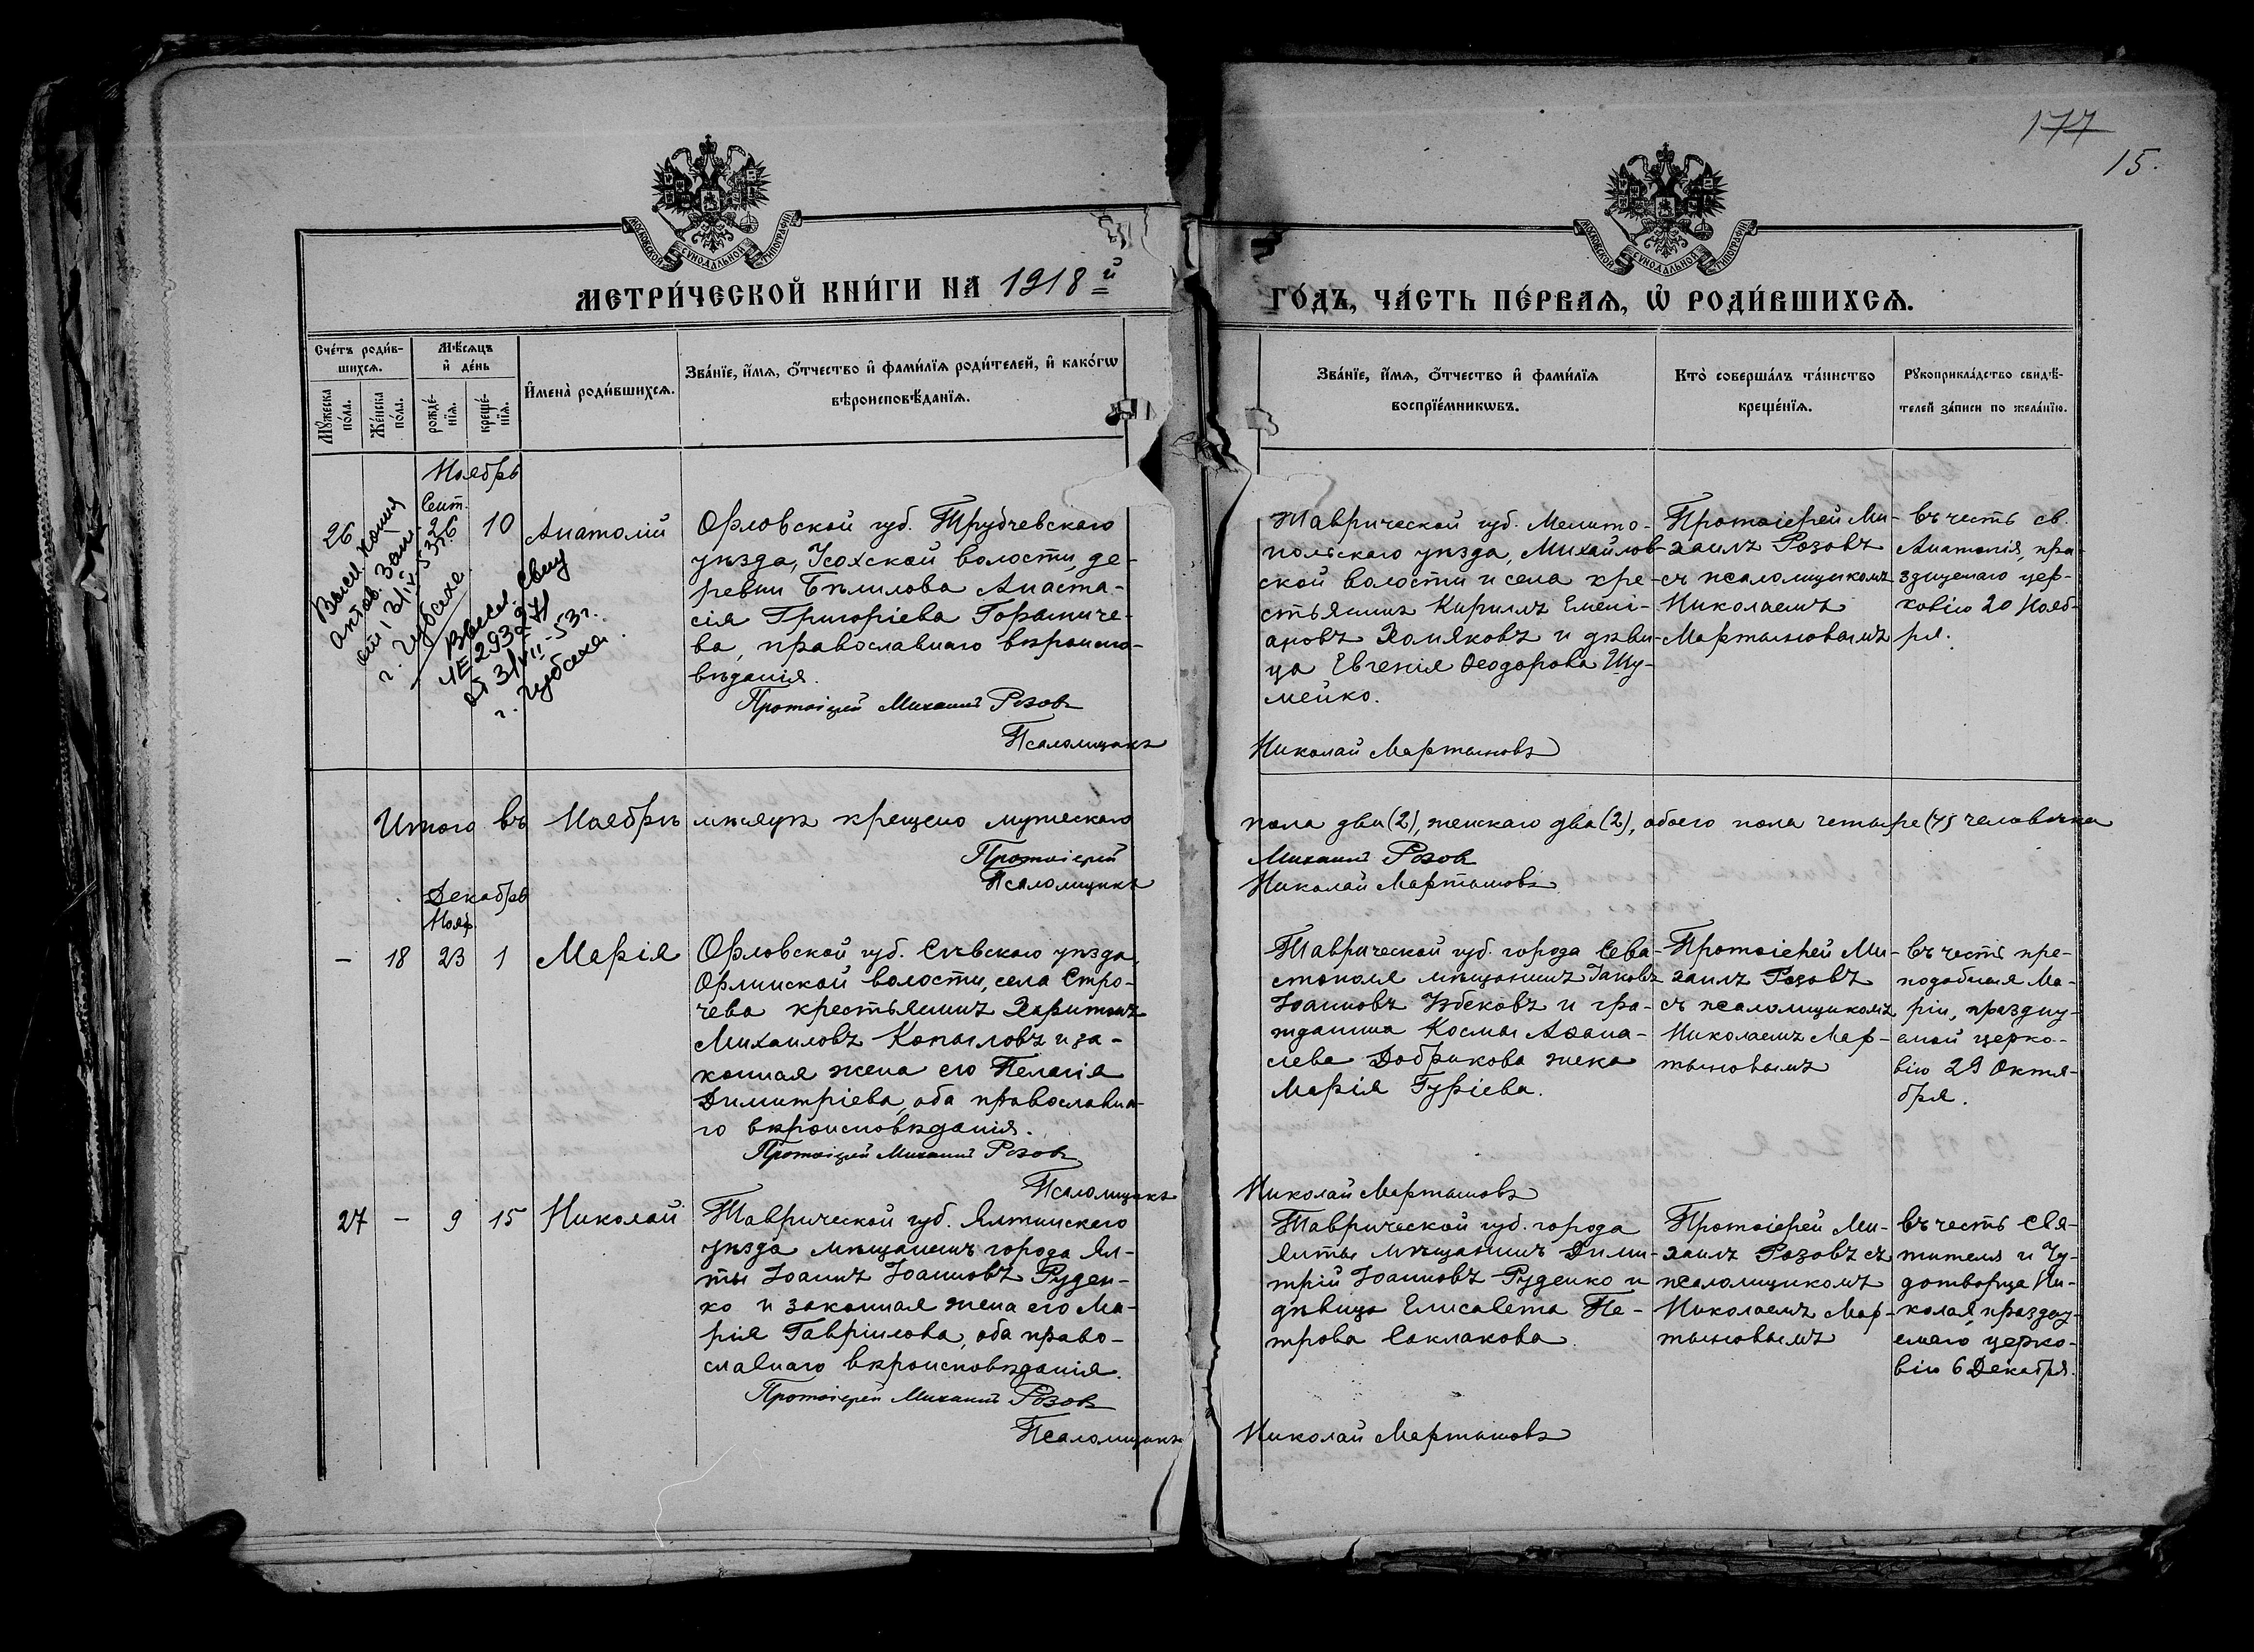 177
15.
МОСКОВСКОЙ СѴНОДАЛЬНОЙ ТИПОГРАФІИ
МОСКОВСКОЙ СѴНОДАЛЬНОЙ ТИПОГРАФІИ
МЕТРИ́ЧЕСКОЙ КНИ́ГИ НА 1918й
ГО́ДЪ, ЧА́СТЬ ПЕ́РВАѦ, Ѡ҆ РОДИ́ВШИХСѦ.
Сче́тъ роди́в-
шихсѧ.
Мꙋ́жеска по́ла.
Же́нска по́ла.
Мѣ́сѧцъ
и҆ де́нь
рожде́-
нїѧ.
креще́-
нїѧ.
И҆мена̀ роди́вшихсѧ.
Зва́нїе, и҆́мѧ, ѻ҆́тчество и҆ фами́лїѧ роди́телей, и҆ како́гѡ
вѣроисповѣ́данїѧ.
Зва́нїе, и҆́мѧ, ѻ҆́тчество и҆ фами́лїѧ
воспрїе́мникѡвъ.
Кто̀ соверша́лъ та́инство
креще́нїѧ.
Рꙋкоприкла́дство свидѣ́-
телей за́писи по жела́нїю.
Ноябрь
Сент.
26
26
10
Анатолій
Орловской губ. Трубчевскаго
уѣзда, Усохской волости, де-
ревни Бѣлилова Анаста-
сія Григоріева Гораниче-
ва, православнаго вѣроиспо-
вѣданія.
Протоіерей Михаилъ Розовъ
Псаломщикъ
Высл. копия
актов. зап.
г. Губаха
Высл. свид
№ 293271
от 3/VII-53г.
г. Губаха.
Таврической губ. Мелито-
польскаго уѣзда, Михайлов-
ской волости и села кре-
стьянинъ Кириллъ Емелі-
ановъ Хомяковъ и дѣви-
ца Евгенія Ѳеодорова Шу-
мейко.
Николай Мартыновъ
Протоіерей Ми-
хаилъ Розовъ
съ псаломщикомъ
Николаемъ
Мартыновымъ
въ честь св.
Анатолія, пра-
зднуемаго цер-
ковію 20 Нояб-
ря.
Итого въ Ноябрѣ мѣсяцѣ крещено мужескаго
пола два (2), женскаго два (2), обоего пола четыре (4) человѣка
Протоіерей
Михаилъ Розовъ
Псаломщикъ
Николай Мартыновъ
Декабрь
Нояб.
–
18
23
1
Марія
Орловской губ. Сѣвскаго уѣзда
Орлинской волости, села Стро-
чева крестьянинъ Харитонъ
Михаиловъ Копыловъ и за-
конная жена его Пелагія
Димитріева, оба православна-
го вѣроисповѣданія.
Протоіерей Михаилъ Розовъ
Псаломщикъ
Таврической губ. города Сева-
стополя мѣщанинъ Іаковъ
Іоанновъ Узбековъ и гра-
жданина Космы Аѳана-
сіева Добрикова жена
Марія Гуріева.
Николай Мартыновъ
Протоіерей Ми-
хаилъ Розовъ
съ псаломщикомъ
Николаемъ Мар-
тыновымъ
въ честь пре-
подобныя Ма-
ріи, праздну-
емой церко-
вію 29 Октя-
бря.
27
–
9
15
Николай
Таврической губ. Ялтинскаго
уѣзда мѣщанинъ города Ял-
ты Іоаннъ Іоанновъ Руден-
ко и законная жена его Ма-
рія Гавріилова, оба право-
славнаго вѣроисповѣданія.
Протоіерей Михаилъ Розовъ
Псаломщикъ
Таврической губ. города
Ялты мѣщанинъ Дими-
трій Іоанновъ Руденко и
дѣвица Елисавета Пе-
трова Саклакова.
Николай Мартыновъ
Протоіерей Ми-
хаилъ Розовъ съ
псаломщикомъ
Николаемъ Мар-
тыновымъ
въ честь Свя-
тителя и Чу-
дотворца Ни-
колая, праздну-
емаго церко-
вію 6 Декабря.